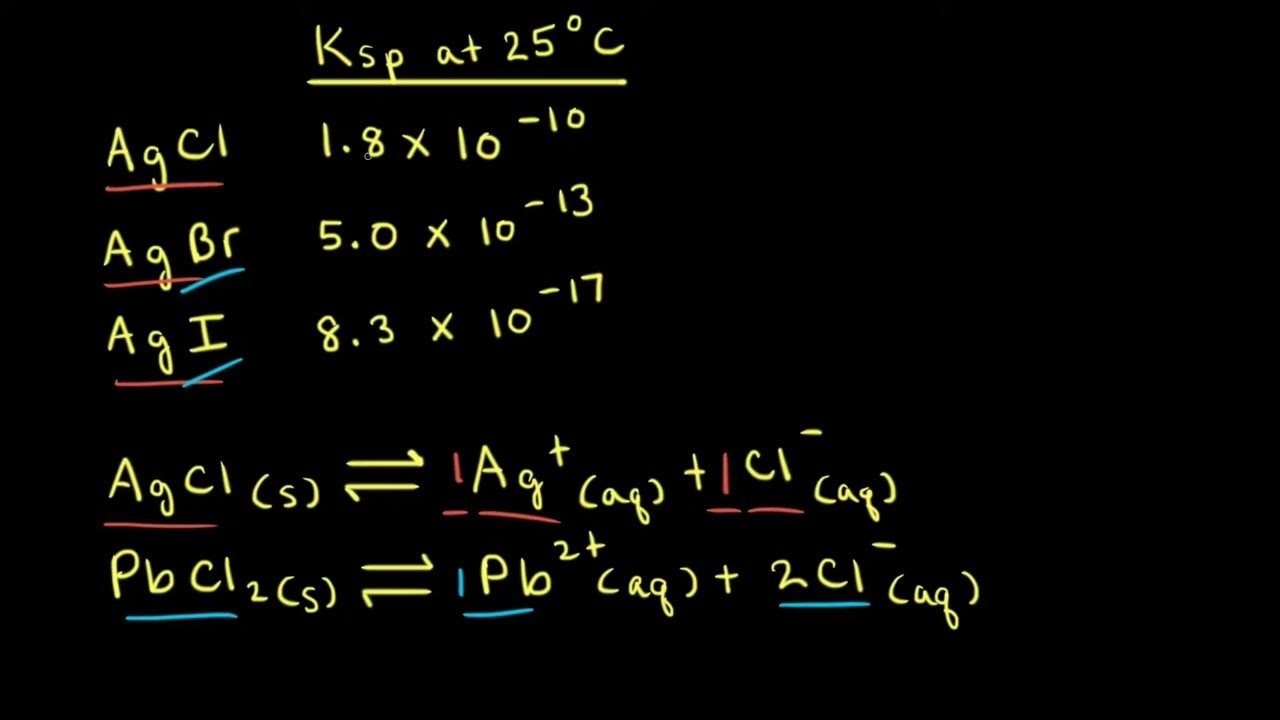 Ksp at 25°C
AgCl 1.8 x 10⁻¹⁰
AgBr 5.0 x 10⁻¹³
AgI 8.3 x 10⁻¹⁷
AgCl(s) ⇌ 1Ag⁺(aq) + 1Cl⁻(aq)
PbCl₂(s) ⇌ 1Pb²⁺(aq) + 2Cl⁻(aq)